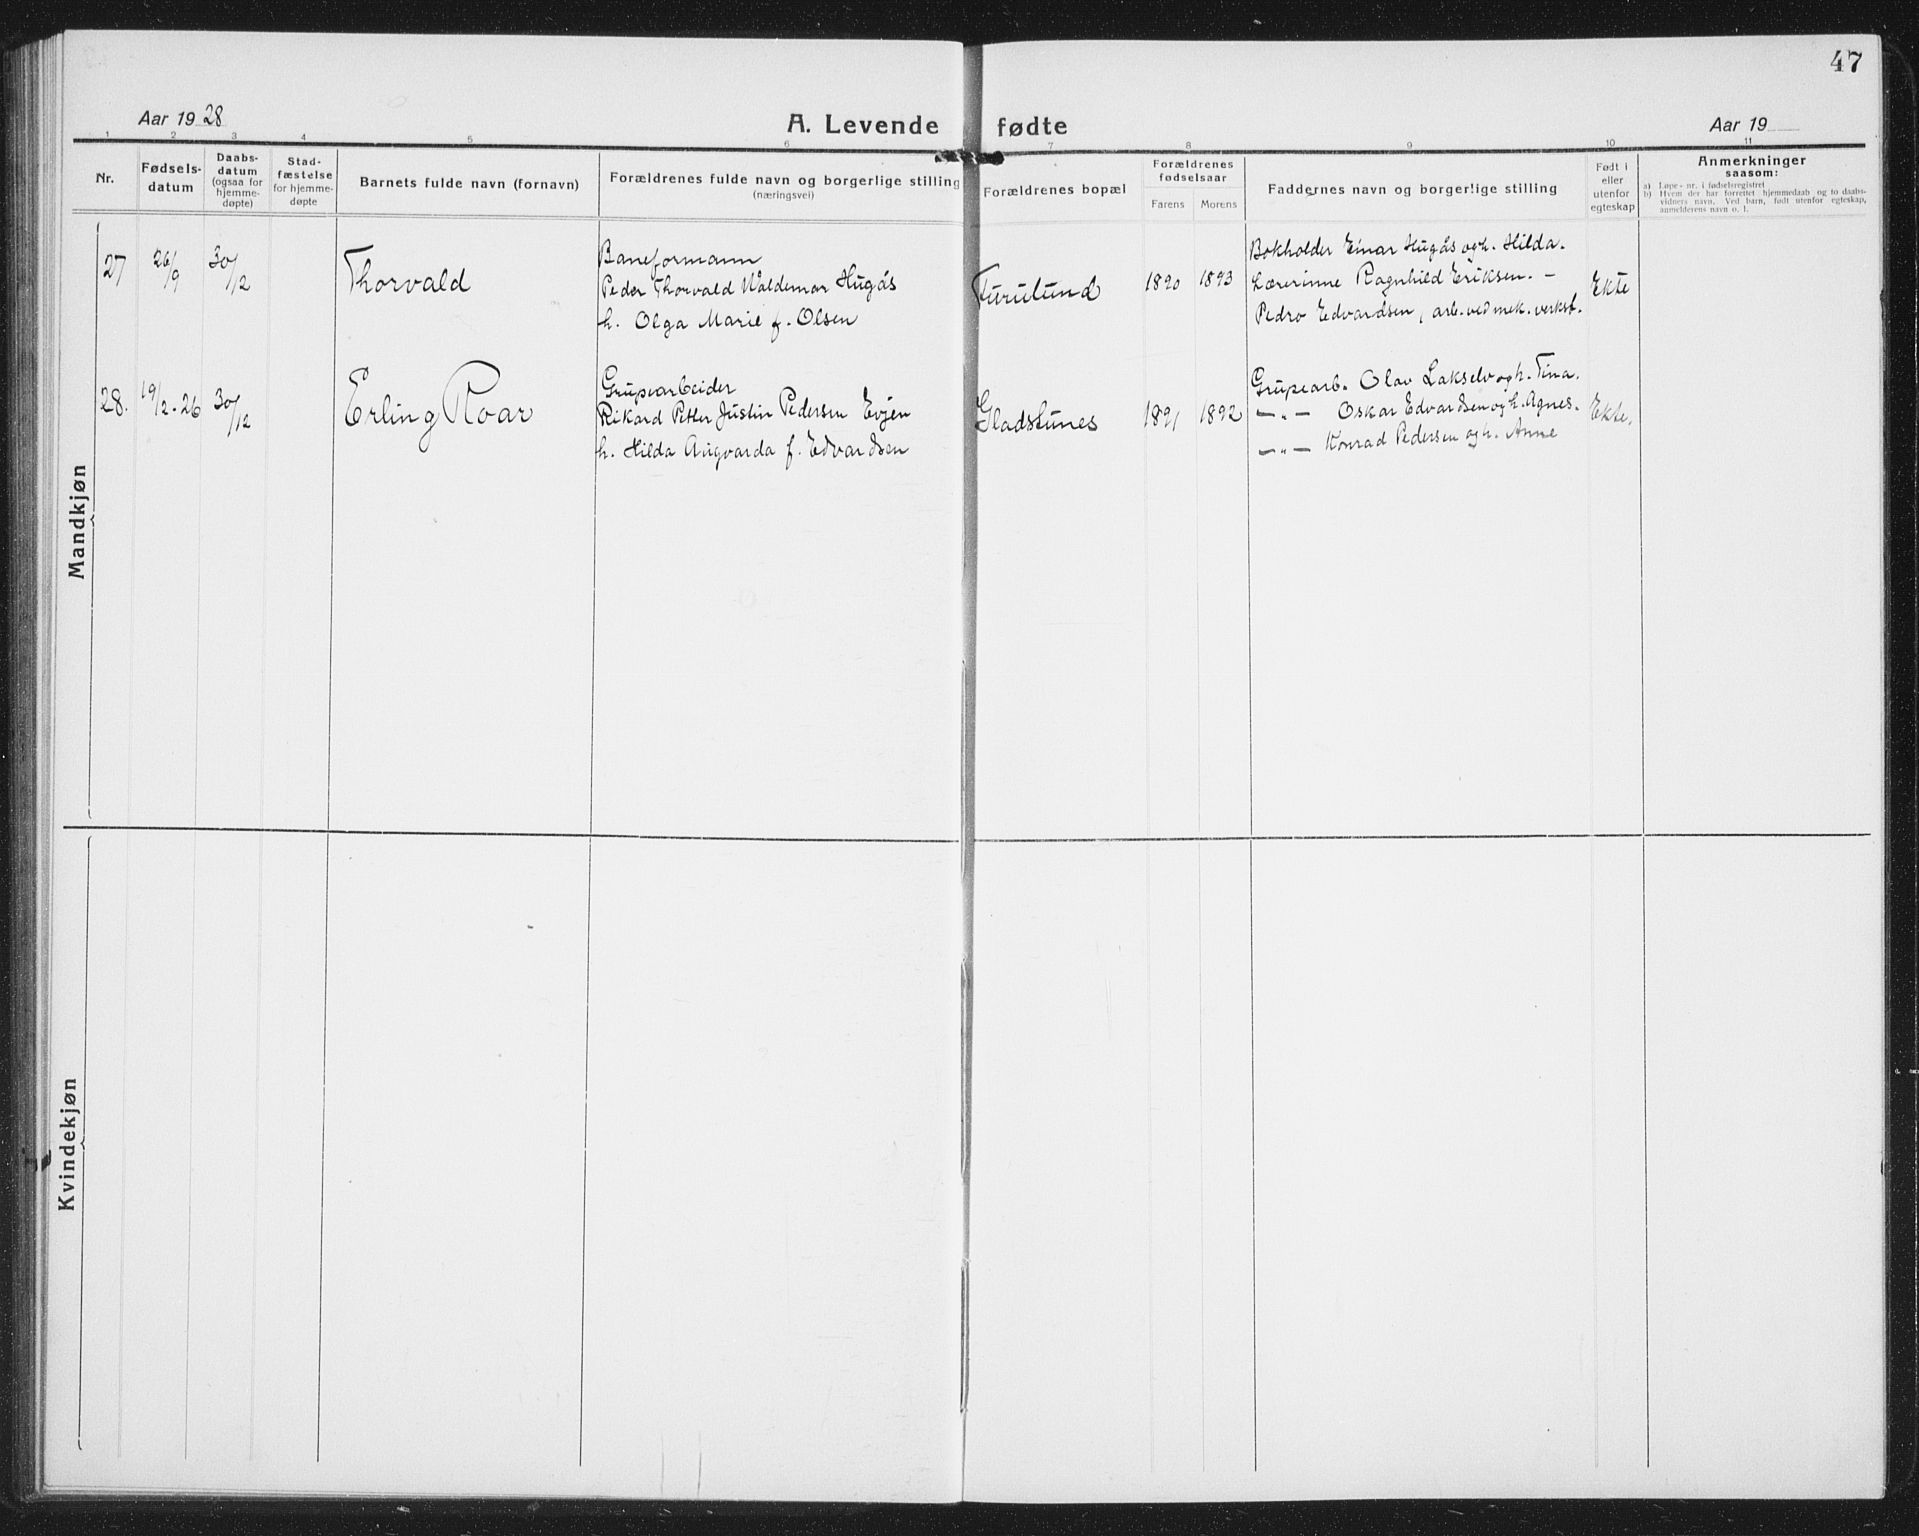 47
Aar 1928
A. Levende fødte
Aar 19
1 2 3 4 5 6 7 8 9 10 11
Nr.
Fødsels-
datum
Daabs-
datum
(ogsaa for
hjemme-
døpte)
Stad-
fæstelse
for hjemme-
døpte
Barnets fulde navn (fornavn)
Forældrenes fulde navn og borgerlige stilling
(næringsvei)
Forældrenes bopæl
Forældrenes
fødselsaar
Farens Morens
Faddernes navn og borgerlige stilling
Født i
eller
utenfor
egteskap
Anmerkninger
saasom:
a) Løpe-nr. i fødselsregistret
b) Hvem der har forrettet hjemmedaab og to daabs-
vidners navn. Ved barn, født utenfor egteskap,
anmelderens navn o. l.
Mandkjøn
27 26/9 30/12 Thorvald
Baneformann
Peder Thorvald Waldemar Hugås
h. Olga Marie f. Olsen
Furulund 1890 1893
Bokholder Einar Hugås og h. Hilda.
Lærerinne Ragnhild Eriksen. –
Pedro Edvardsen, arb. ved mek. verkst.
Ekte
28. 19/2-26 30/12 Erling Roar
Grupearbeider
Rikard Petter Justin Pedersen Evjen
h. Hilda Augvarda f. Edvardsen
Gladstunes 1891 1892
Grupearb. Olav Lakselv og h. Tina.
— " — Oskar Edvardsen og h. Agnes.
— " — Konrad Pedersen og h. Anne
Ekte.
Kvindekjøn